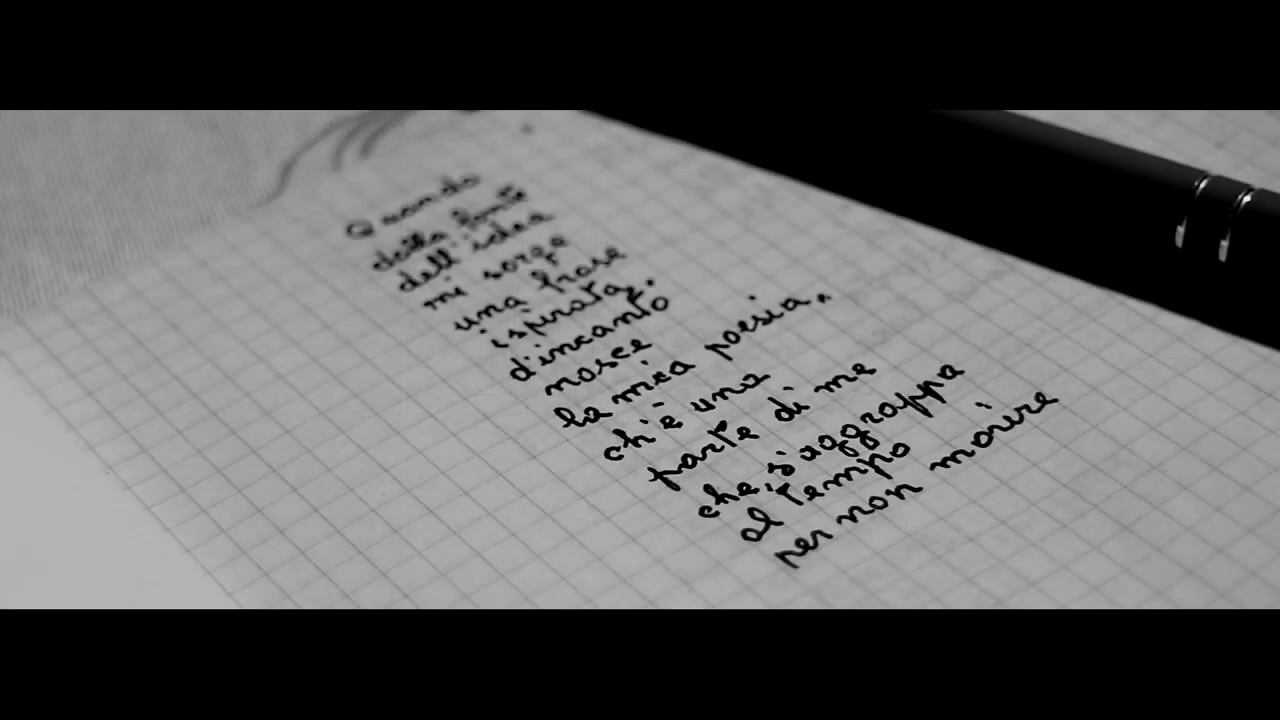 Quando
dalla fonte
dell'idea
mi sorge
una frase
ispirata,
d'incanto
nasce
la mia poesia,
ch'è una
parte di me
che s'aggrappa
al tempo
per non morire